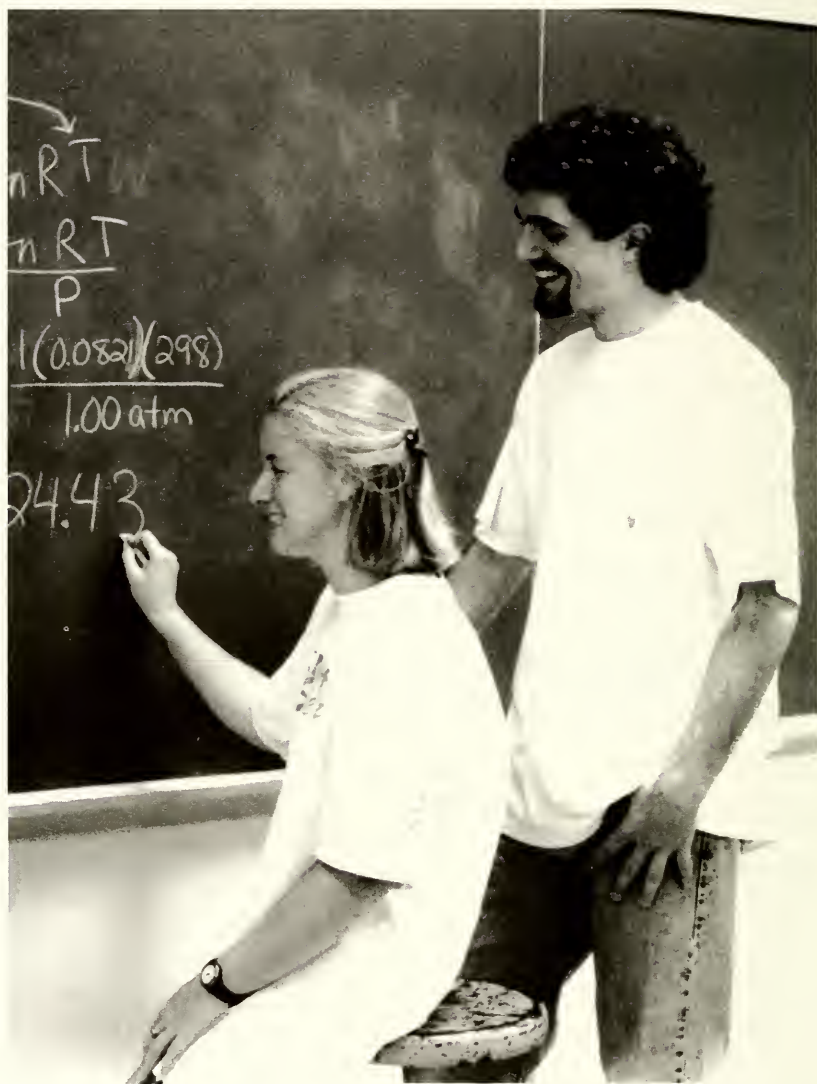 nRT
nRT
P
1(0.0821)(298)
1.00 atm
24.43